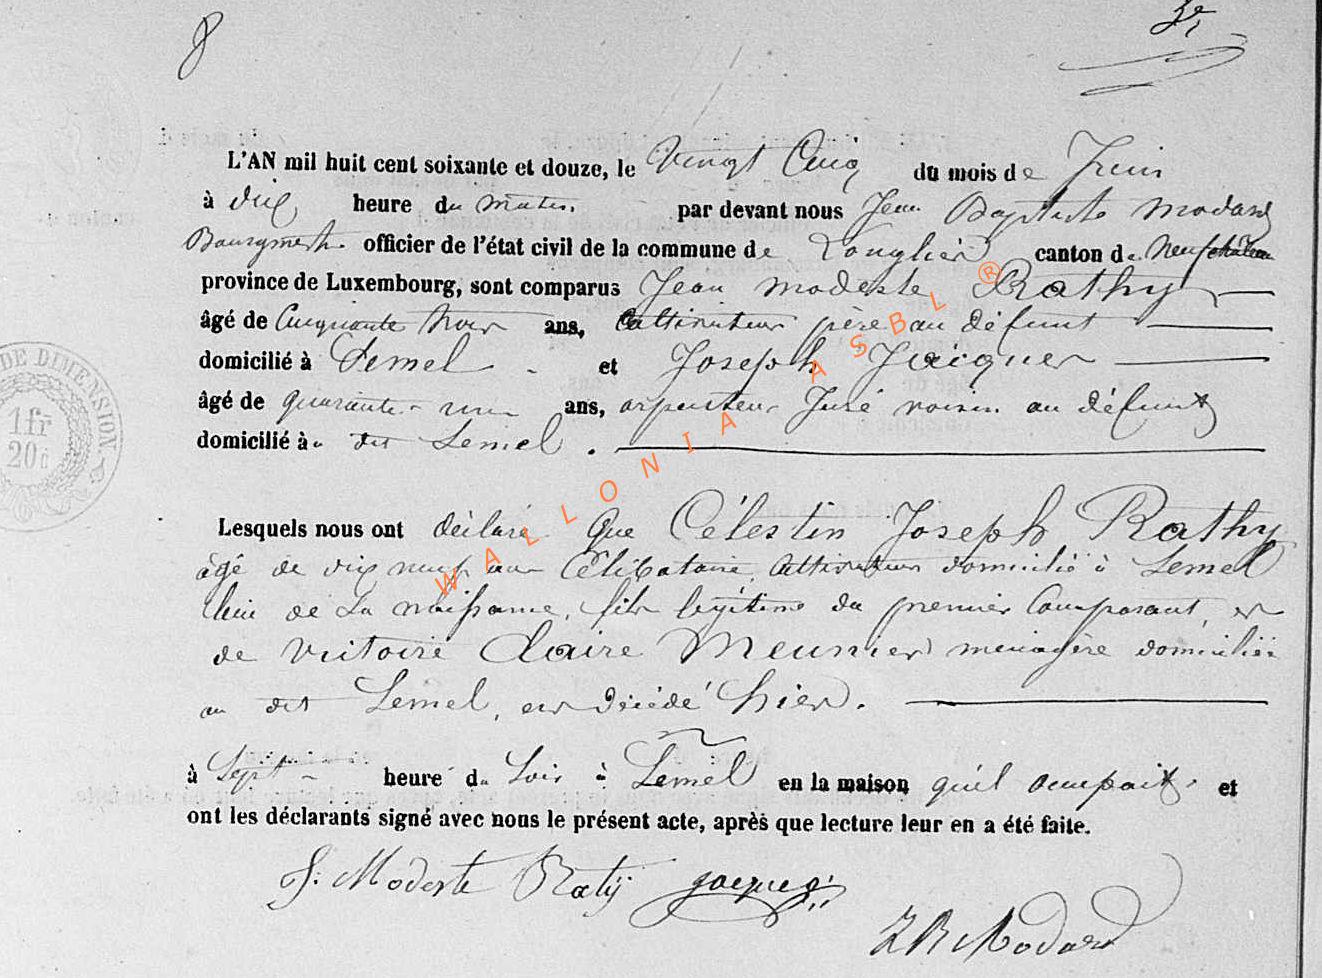 8
L'AN mil huit cent soixante et douze, le Vingt Cinq du mois de Juin
à dix heure du matin. par devant nous Jean Baptiste Modard
Bourgmestre officier de l'état civil de la commune de Longlier canton de Neufchâteau
province de Luxembourg, sont comparus Jean Modeste Rathy
âgé de Cinquante trois ans, Cultivateur père au défunt
domicilié à Lemel et Joseph Jacques
âgé de quarante-un ans, arpenteur Juré voisin au défunt
domicilié au dit Lemel.
Lesquels nous ont déclaré que Célestin Joseph Rathy
âgé de dix neuf ans Célibataire, Cultivateur domicilié à Lemel
lieu de sa naissance, fils légitime du premier Comparant, et
de Victoire Claire Meunier ménagère domiciliée
au dit Lemel, est décédé hier.
à Sept heure du Soir à Lemel en la maison qu'il occupait et
ont les déclarants signé avec nous le présent acte, après que lecture leur en a été faite.
J. Modeste Ratÿ Jacques
J B Modard
DE DIMENSION.
1 fr
20 c
WALLONIA ASBL ®